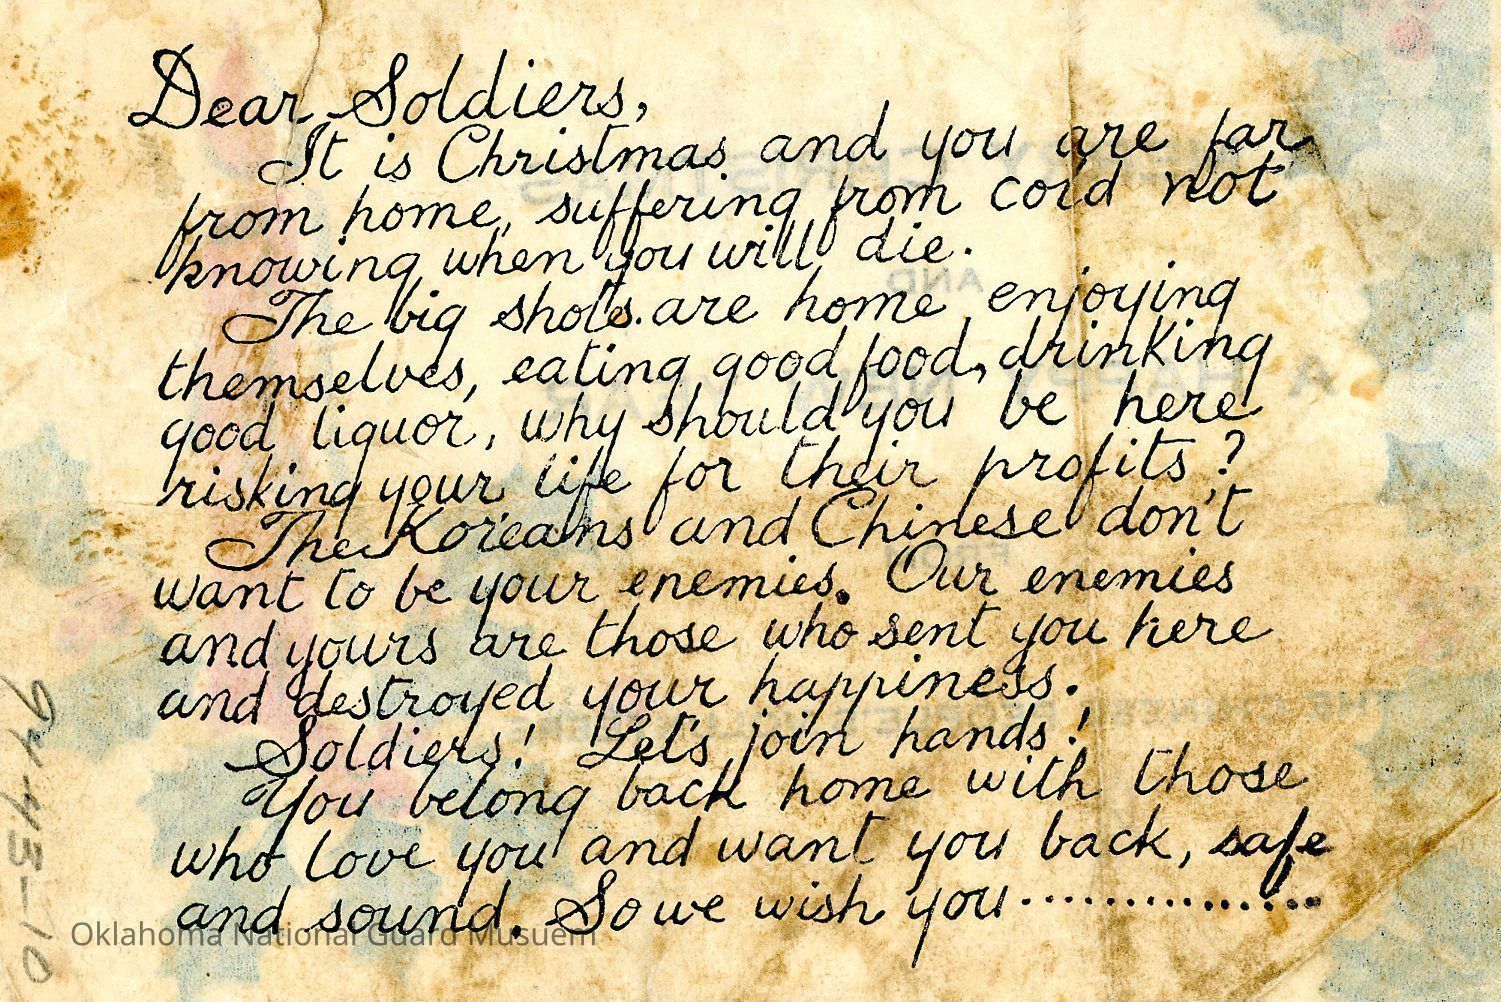 Dear Soldiers,
It is Christmas and you are far
from home, suffering from cold not
knowing when you will die.
The big shots are home enjoying
themselves, eating good food, drinking
good liquor, why should you be here
risking your life for their profits?
The Koreans and Chinese don't
want to be your enemies. Our enemies
and yours are those who sent you here
and destroyed your happiness.
Soldiers! Let's join hands!
You belong back home with those
who love you and want you back, safe
and sound. So we wish you...............
Oklahoma National Guard Musuem